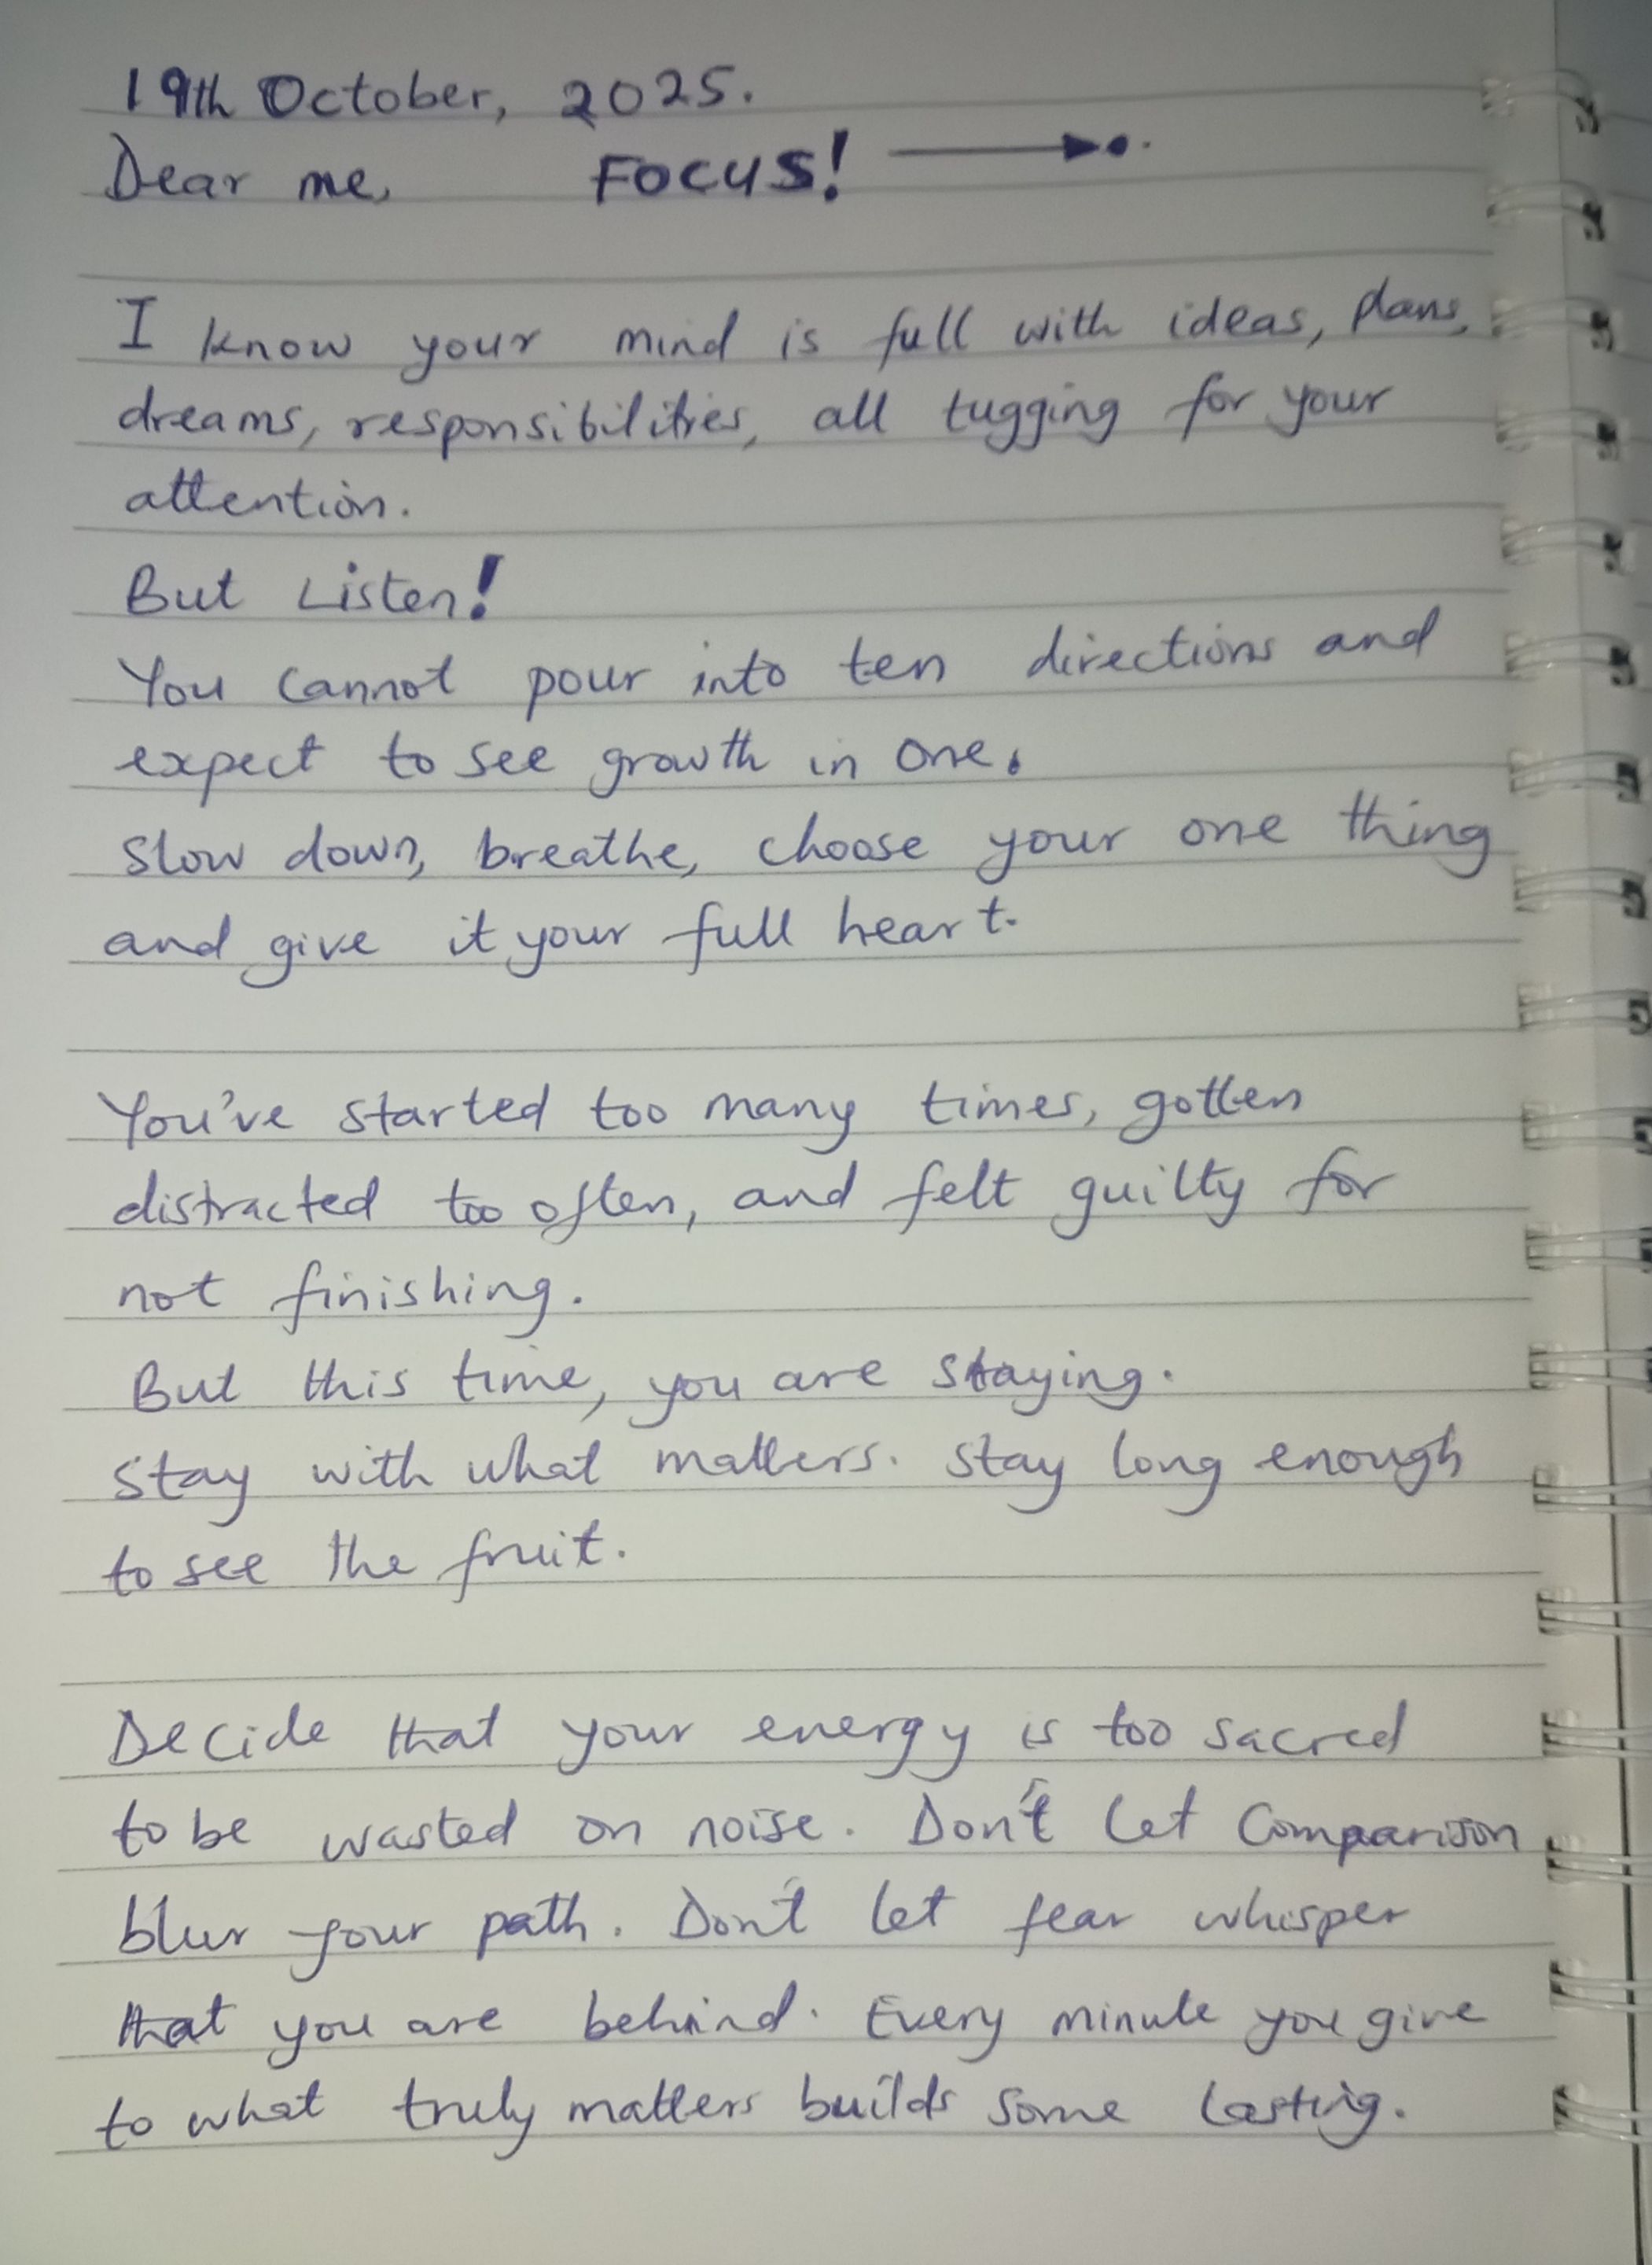 19th October, 2025.
Dear me, FOCUS!
I know your mind is full with ideas, plans,
dreams, responsibilities, all tugging for your
attention.
But Listen!
You cannot pour into ten directions and
expect to see growth in one.
Slow down, breathe, choose your one thing
and give it your full heart.
You've started too many times, gotten
distracted too often, and felt guilty for
not finishing.
But this time, you are staying.
Stay with what matters. Stay long enough
to see the fruit.
Decide that your energy is too sacred
to be wasted on noise. Don't let Comparison
blur your path. Don't let fear whisper
that you are behind. Every minute you give
to what truly matters builds some lasting.